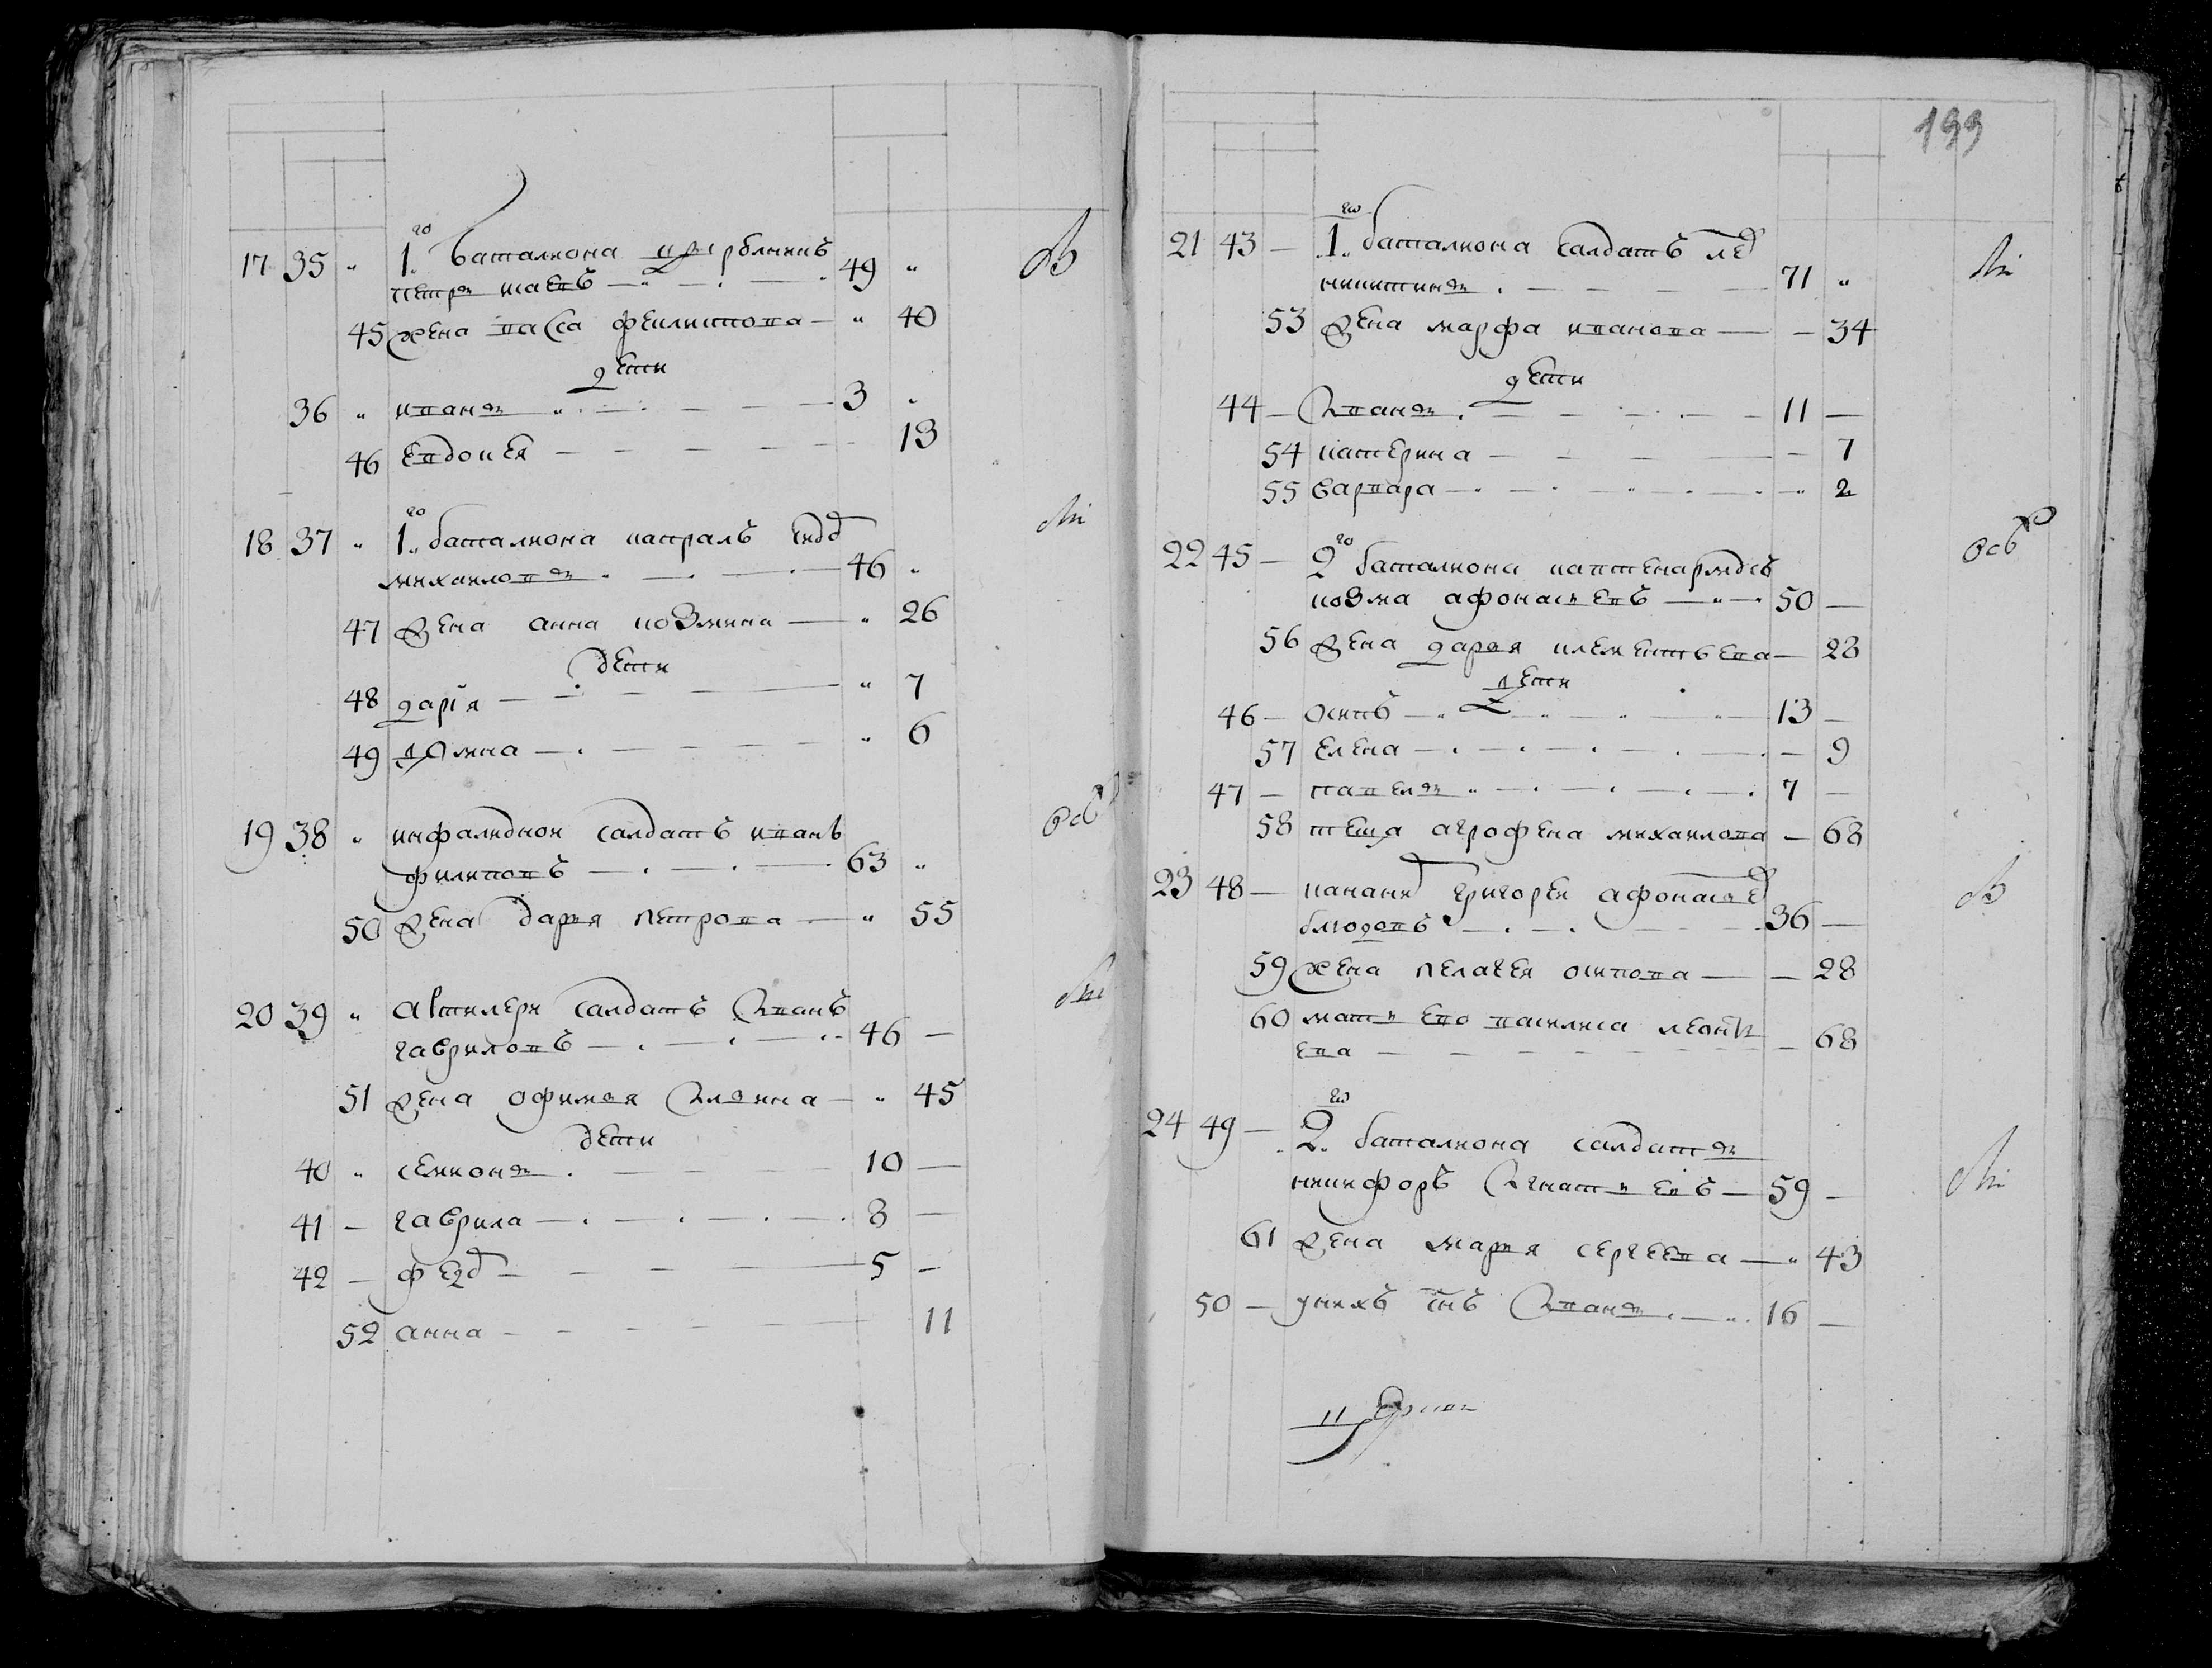 17 35 „ 1.го баталиона цырблникъ
петръ исаевъ — 49 „
45 жена васса феилистова — „ 40
дети
36 „ иванъ — 3 „
46 евдокея — 13
18 37 „ 1.го баталиона капралъ
михаиловъ — 46 „
47 жена анна козмина — „ 26
дети
48 дарія — „ 7
49 домна — „ 6
19 38 „ инфалиднои салдатъ иванъ
филиповъ — 63 „
50 жена даря петрова — „ 55
20 39 „ артилери салдатъ Иванъ
гавриловъ — 46 —
51 жена офимья Ильина — „ 45
дети
40 „ семионъ — 10 —
41 — гаврила — 8 —
42 — фед — 5 —
52 анна — 11
199
21 43 — 1.го баталиона салдатъ
никитинъ — 71 „
53 жена марфа иванова — — 34
дети
44 — Иванъ — 11 —
54 катерина — — 7
55 варвара — „ 2
22 45 — 2го баталиона каптенармусъ
козма афонасьевъ — 50 —
56 жена дарья клементьева — 28
дети
46 — осипъ — 13 —
57 елена — — 9
47 — павелъ — 7 —
58 теща агрофена михаилова — 68
23 48 — григореи афонасьев
блюдовъ — 36 —
59 жена пелагея осипова — — 28
60 мать ево василиса леонть
ева — — 68
24 49 — 2.го баталиона салдатъ
никифоръ Игнатьевъ — 59 —
61 жена марья сергеева — „ 43
50 — унихъ снъ Иванъ — 16 —